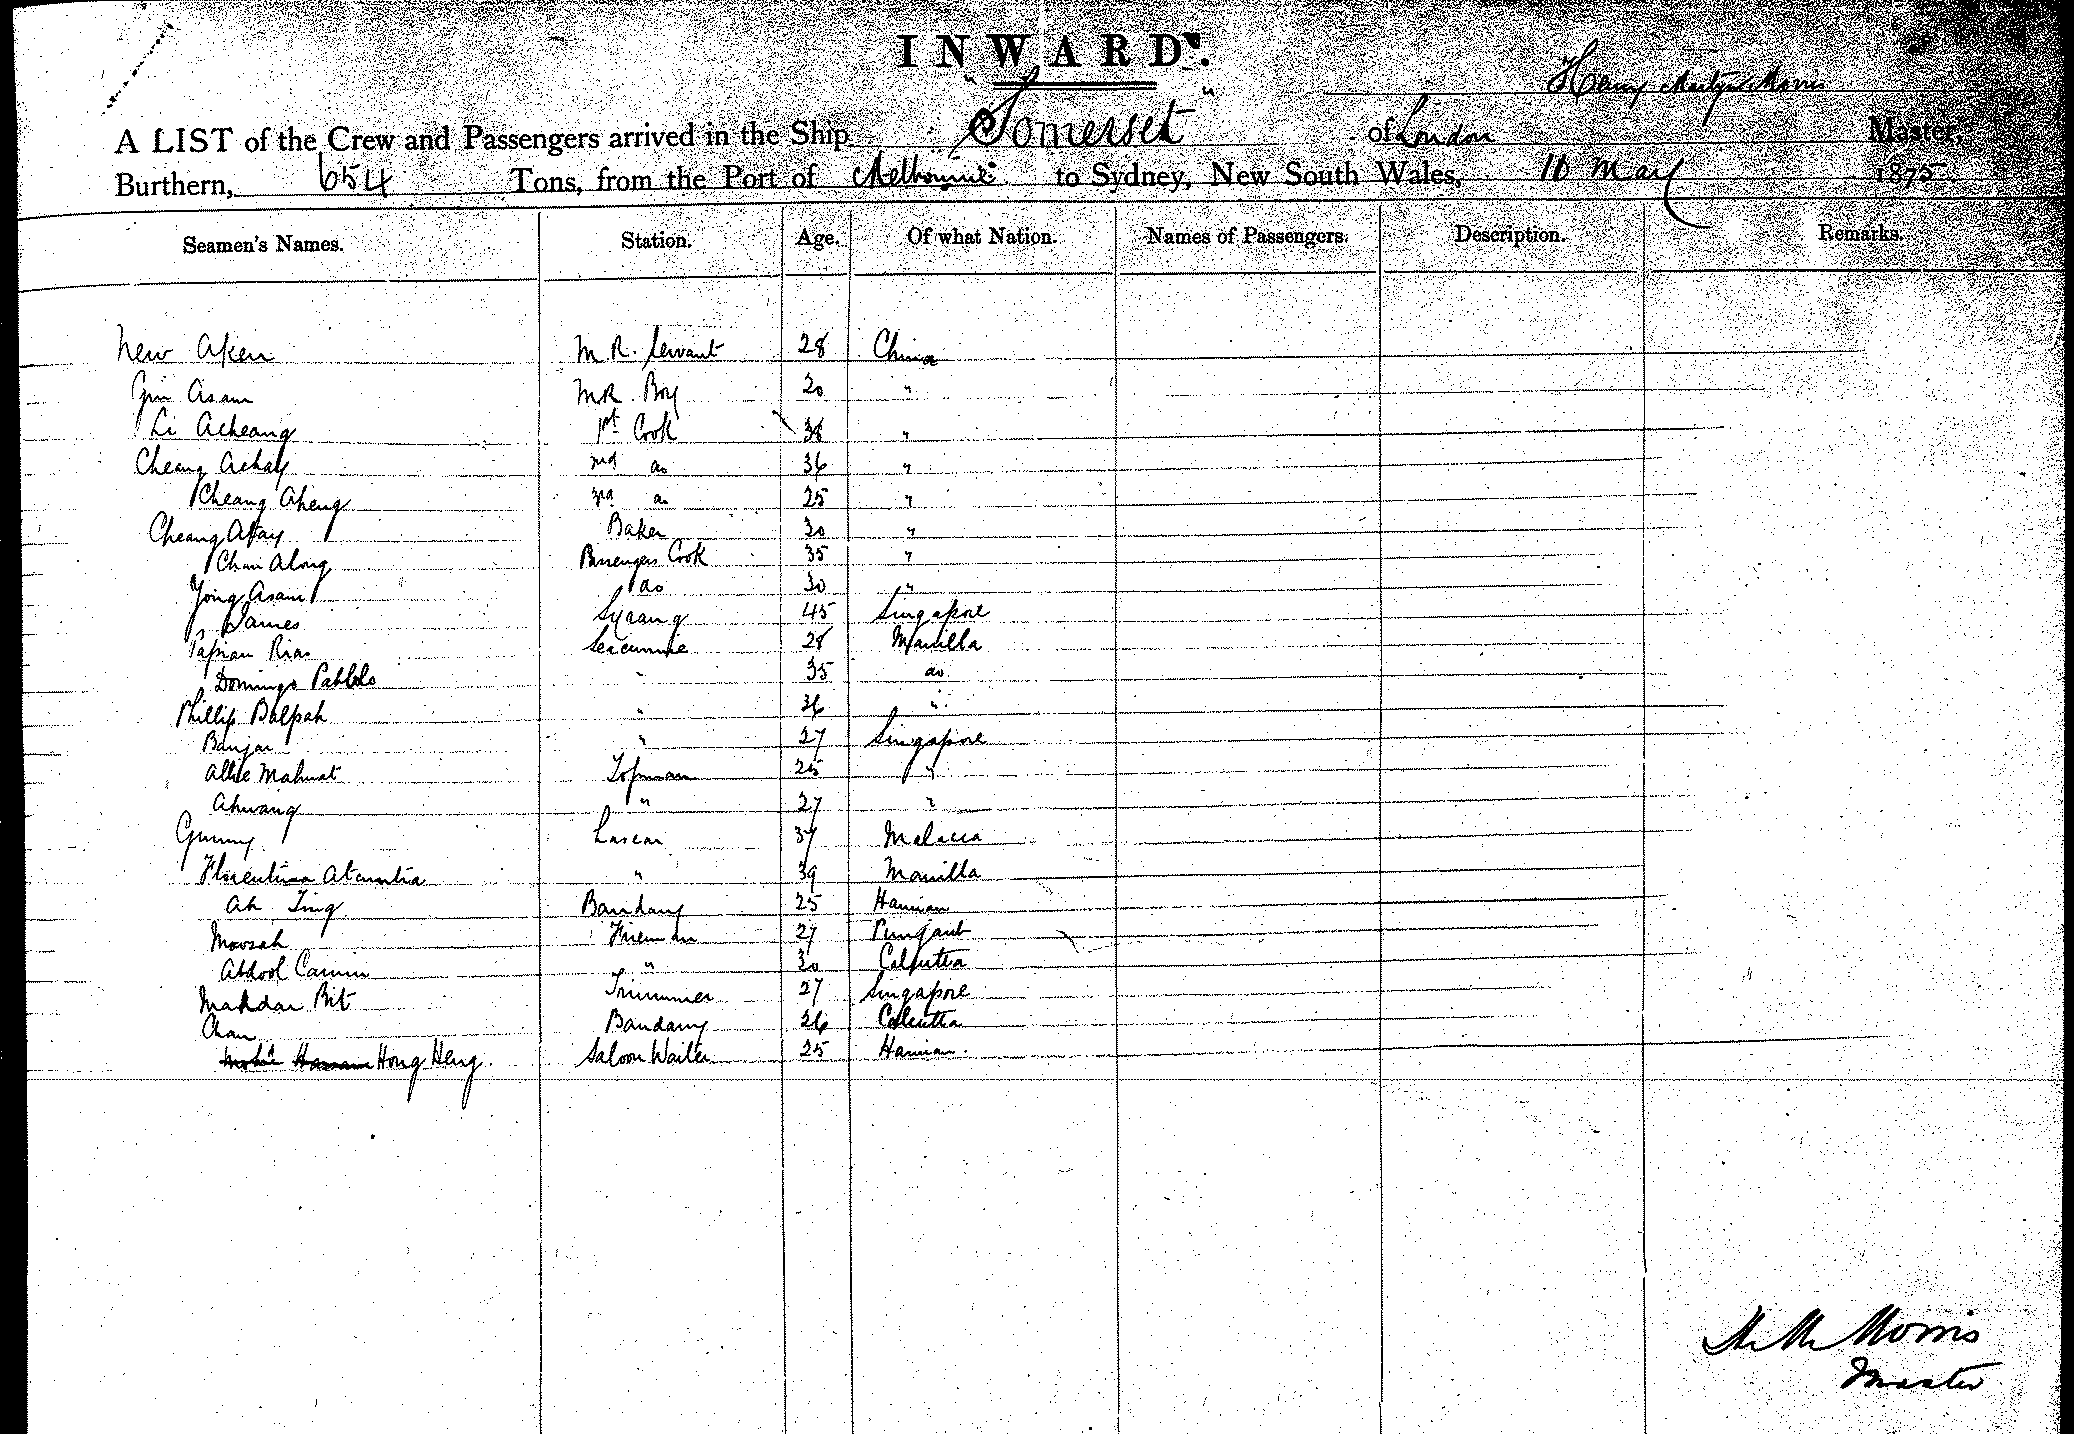 INWARD.
Henry Martyn Morris
A LIST of the Crew and Passengers arrived in the Ship "Somerset" of London Master,
Burthern, 654 Tons, from the Port of Melbourne to Sydney, New South Wales, 16 May 1875
Seamen's Names. Station. Age. Of what Nation. Names of Passengers. Description. Remarks.
New Aken M R. Servant 28 China
Asam M R. Boy 20 "
Li Acheang 1st Cook 38 "
Cheang Achay 2nd do 36 "
Cheang Aheng 3rd do 25 "
Cheang Akay Baker 30 "
Chan Along Passengers Cook 35 "
Yong Asam do 30 "
James Syrang 45 Singapore
Rias Seacunnie 28 Manilla
Domingo Pablolo " 35 do
Phillip Balpah " 36 "
Banjar " 27 Singapore
Allie Mahmat Topman 25 "
Ahwang " 27 "
Gunny Lascar 37 Malacca
Florentina " 39 Manilla
Ah Ting Bandary 25 Hainan
Moosah Fireman 27 Punjaub
Abdool Carrim " 30 Calcutta
Makdar Bit Trimmer 27 Singapore
Chan Bandary 26 Calcutta
Hong Heng. Saloon Waiter 25 Hainan.
H M Morris
Master